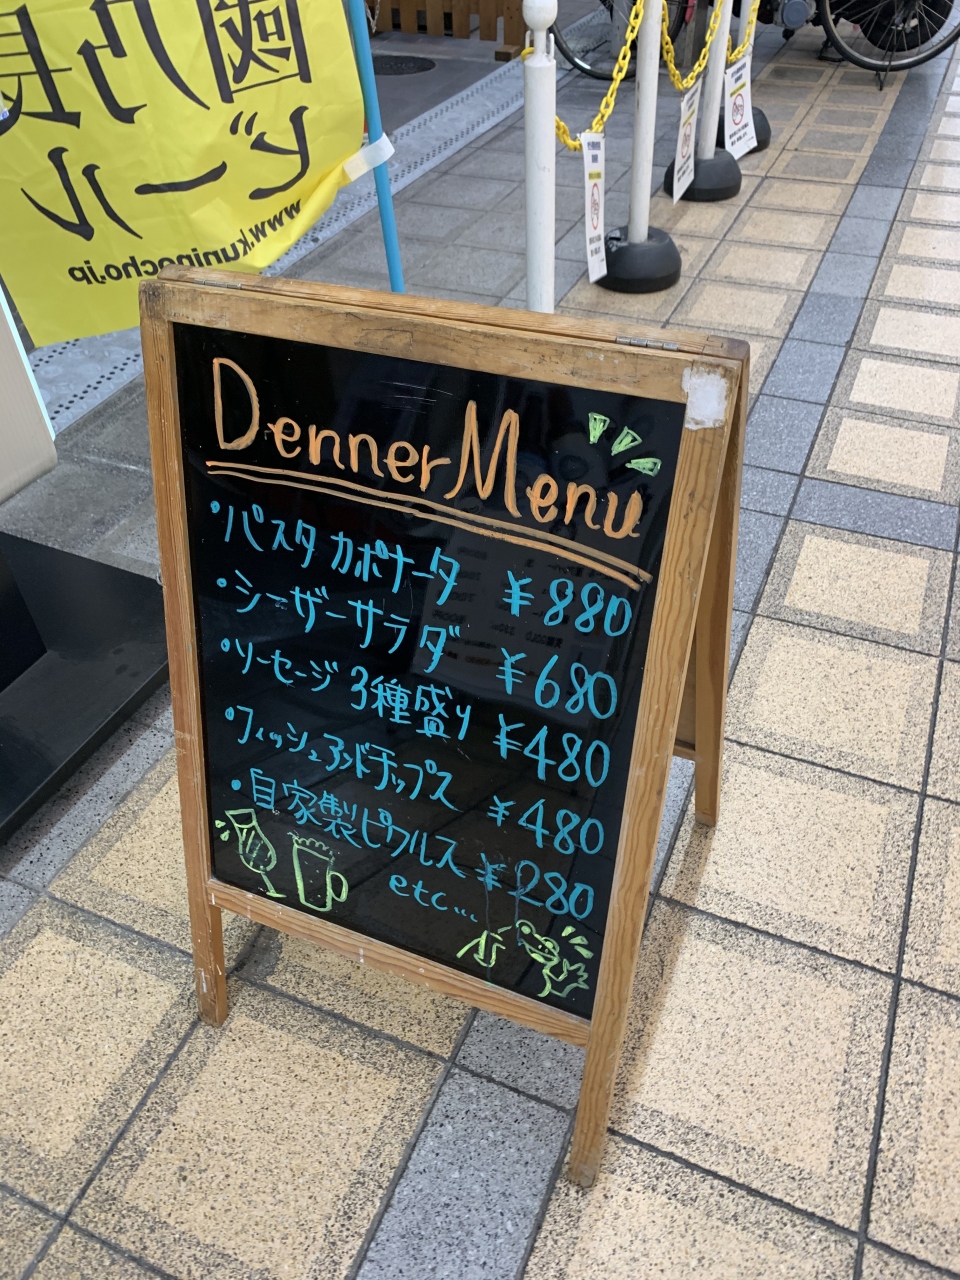 國乃長
ビール
www.kuninocho.jp
Denner Menu
・パスタ カポナータ ¥880
・シーザーサラダ ¥680
・ソーセージ 3種盛り ¥480
・フィッシュアンドチップス ¥480
・自家製ピクルス ¥280
etc...